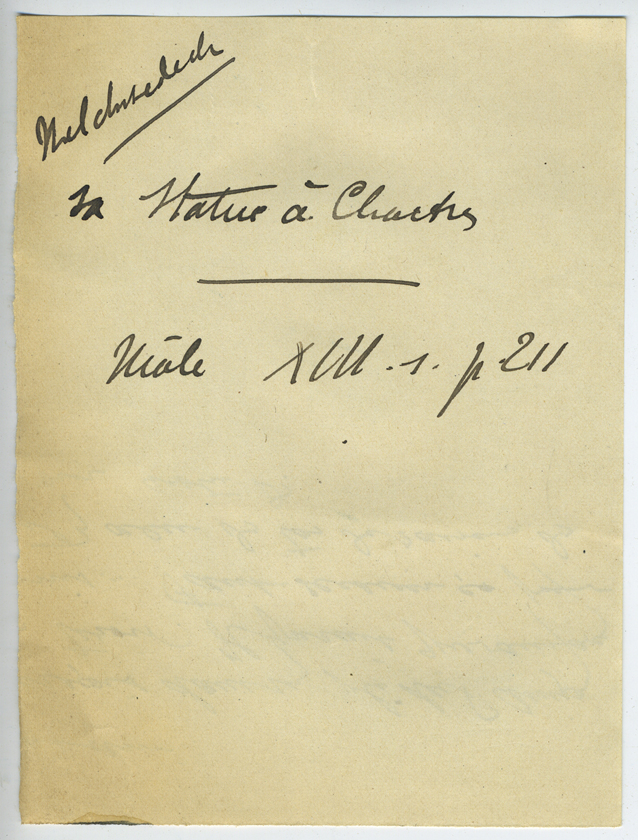 Melchisedech
sa Statue à Chartres
Mâle XIII. s. p 211